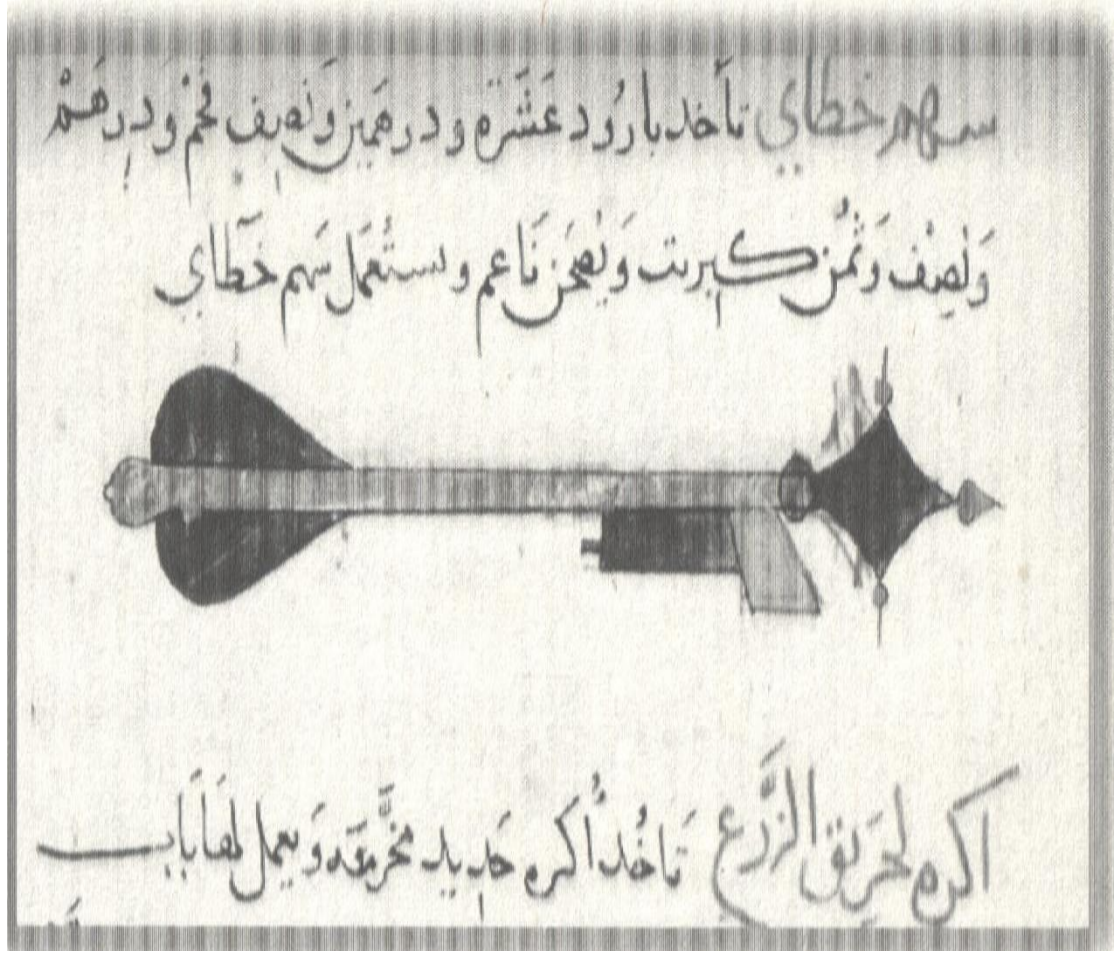 سهم خطاي تأخذ بارُود عَشَرَه ودرهَمين وَنصِف فحْم وَدِرهَمْ
وَنصِفْ وَثمُن كبريت وَيُصْحَن نَاعم وَيستعْمَل سَهم خطَاي
اكره لحَريق الزَّرع تَاخُد اُكره حَديد مخرّمه وَيعمل لهَا بَاب